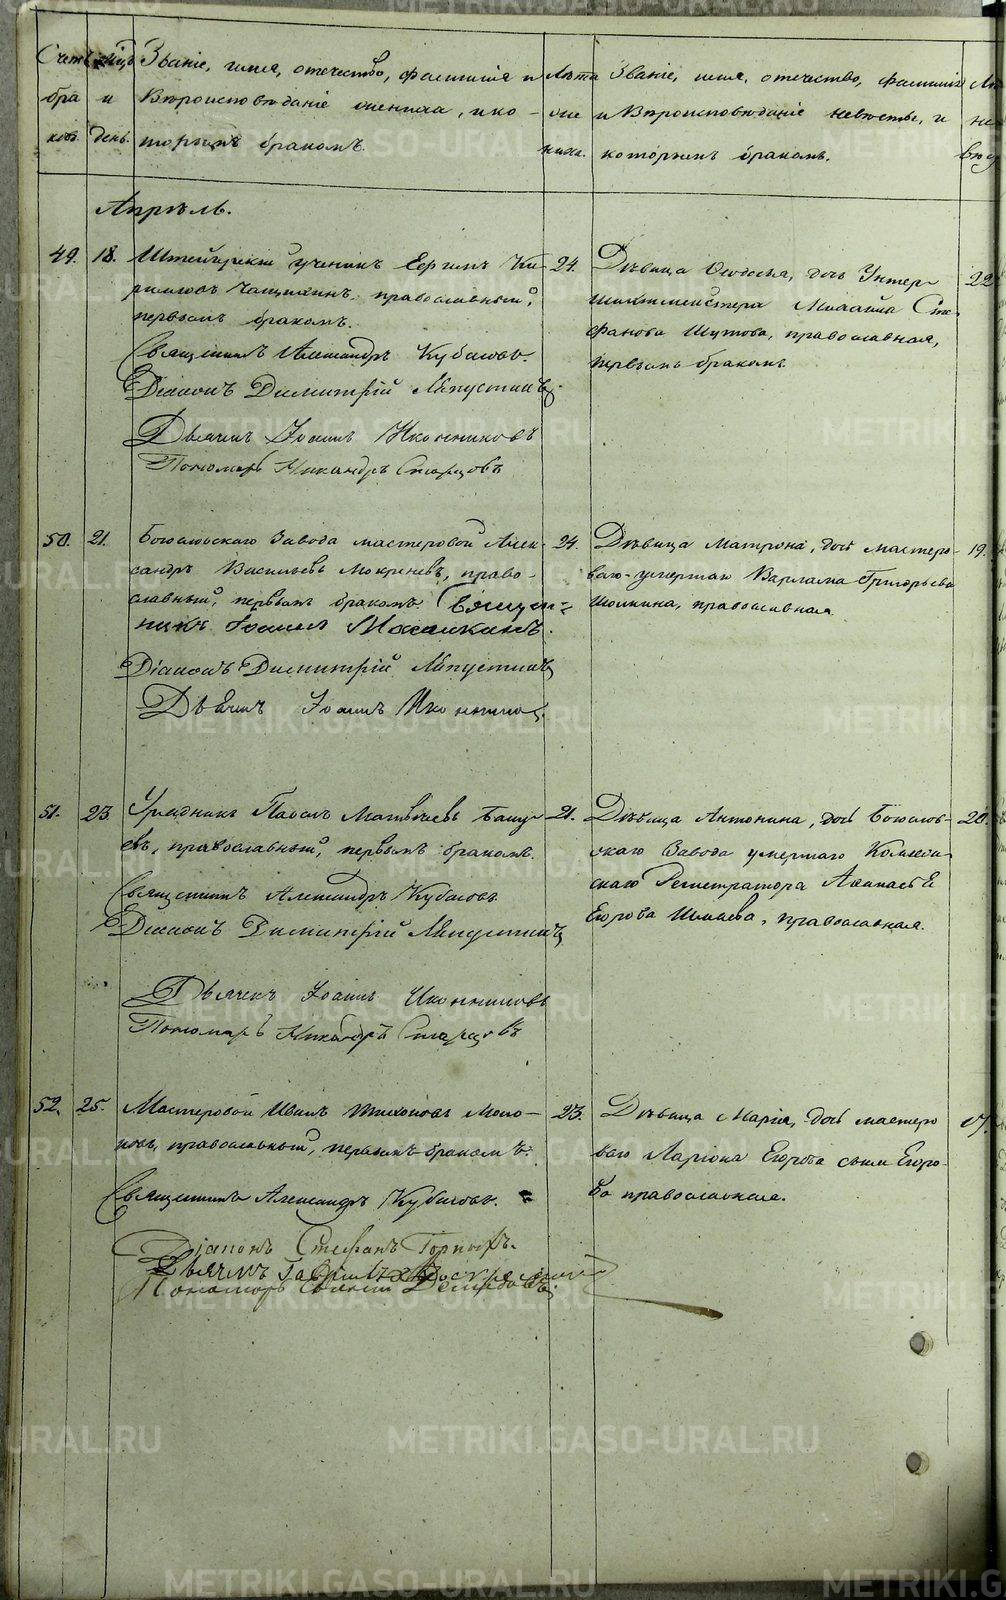 Счетъ мцъ Званіе, имя, отечество, фамилія и Лѣта Званіе, имя, отечество, фамилія
бра и Вѣроисповѣданіе жениха, и ко- же и Вѣроисповѣданіе невѣсты, и
ковъ. день. торымъ бракомъ. ниха. которымъ бракомъ.
Апрѣль.
49. 18. 24. 22
Штейгерскій ученикъ Ефимъ Ки-
риловъ Чащихинъ, православный,
первымъ бракомъ.
Священникъ Александръ Кубасовъ.
Діаконъ Димитрій Ляпустинъ.
Дьячекъ Іоаннъ Иконниковъ
Пономарь Никандръ Старцовъ
Дѣвица Ѳеодосья, дочь Унтер-
шихтмейстера Михаила Сте-
фанова Шутова, православная,
первымъ бракомъ.
50. 21. 24. 19.
Богословскаго Завода мастеровой Алек-
сандръ Васильевъ Мокренев, право-
славный, первымъ бракомъ. Священ-
никъ Іоаннъ
Діаконъ Димитрій Ляпустинъ
Дьячекъ Іоаннъ Иконников
Дѣвица Матрона, дочь мастеро-
ваго умершаго Варлама Григорьева
православная
51. 23. 21. 20.
Урядникъ Павелъ Матвѣевъ
православный, первымъ бракомъ.
Священникъ Александръ Кубасовъ
Діаконъ Димитрій Ляпустинъ
Дьячекъ Іоаннъ Иконниковъ
Пономарь Никандръ Старцовъ
Дѣвица Антонина, дочь Богослов-
скаго Завода умершаго Коллеж-
скаго Регистратора Аѳанасья
Егорова православная.
52. 25. 23. 17.
Мастеровой Иванъ Тихоновъ
православный, первымъ бракомъ.
Священникъ Александръ Кубасовъ.
Діаконъ Стефанъ Горныхъ.
Дьячекъ Гавріилъ Воскресенскій
Пономарь
Дѣвица Марія, дочь мастеро
ваго Ларіона Егорова сына Егоро-
ва православная.
METRIKI.GASO-URAL.RU